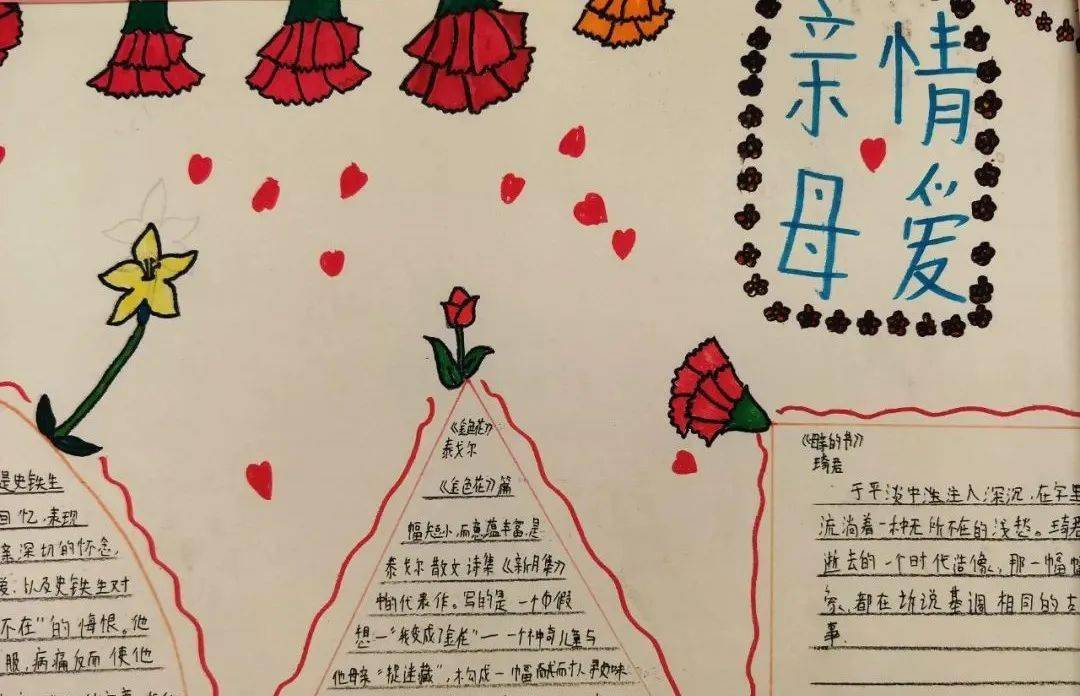 亲情
母爱
是史铁生
回忆,表现
亲深切的怀念,
爱;以及史铁生对
不在”的悔恨。他
服,病痛反而使他
《金色花》
泰戈尔
《金色花》篇
幅短小,而意蕴丰富,是
泰戈尔散文诗集《新月集》
的代表作。写的是一个
想—“我变成了金色花”—一个神奇儿童与
他母亲“捉迷藏”,构成一幅
《母亲的书》
琦君
于平淡中注入深沉,在字里
流淌着一种无所不在的浅愁。琦君
逝去的一个时代造像,那一幅幅
都在诉说基调相同的古
事.